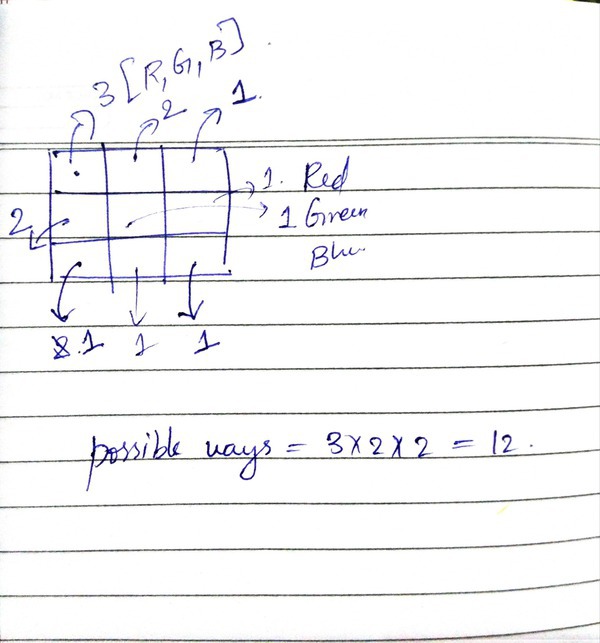 3 [R, G, B].
2
1.
1. Red
2
1 Green
Blue
1 1 1
possible ways = 3x2x2 = 12.